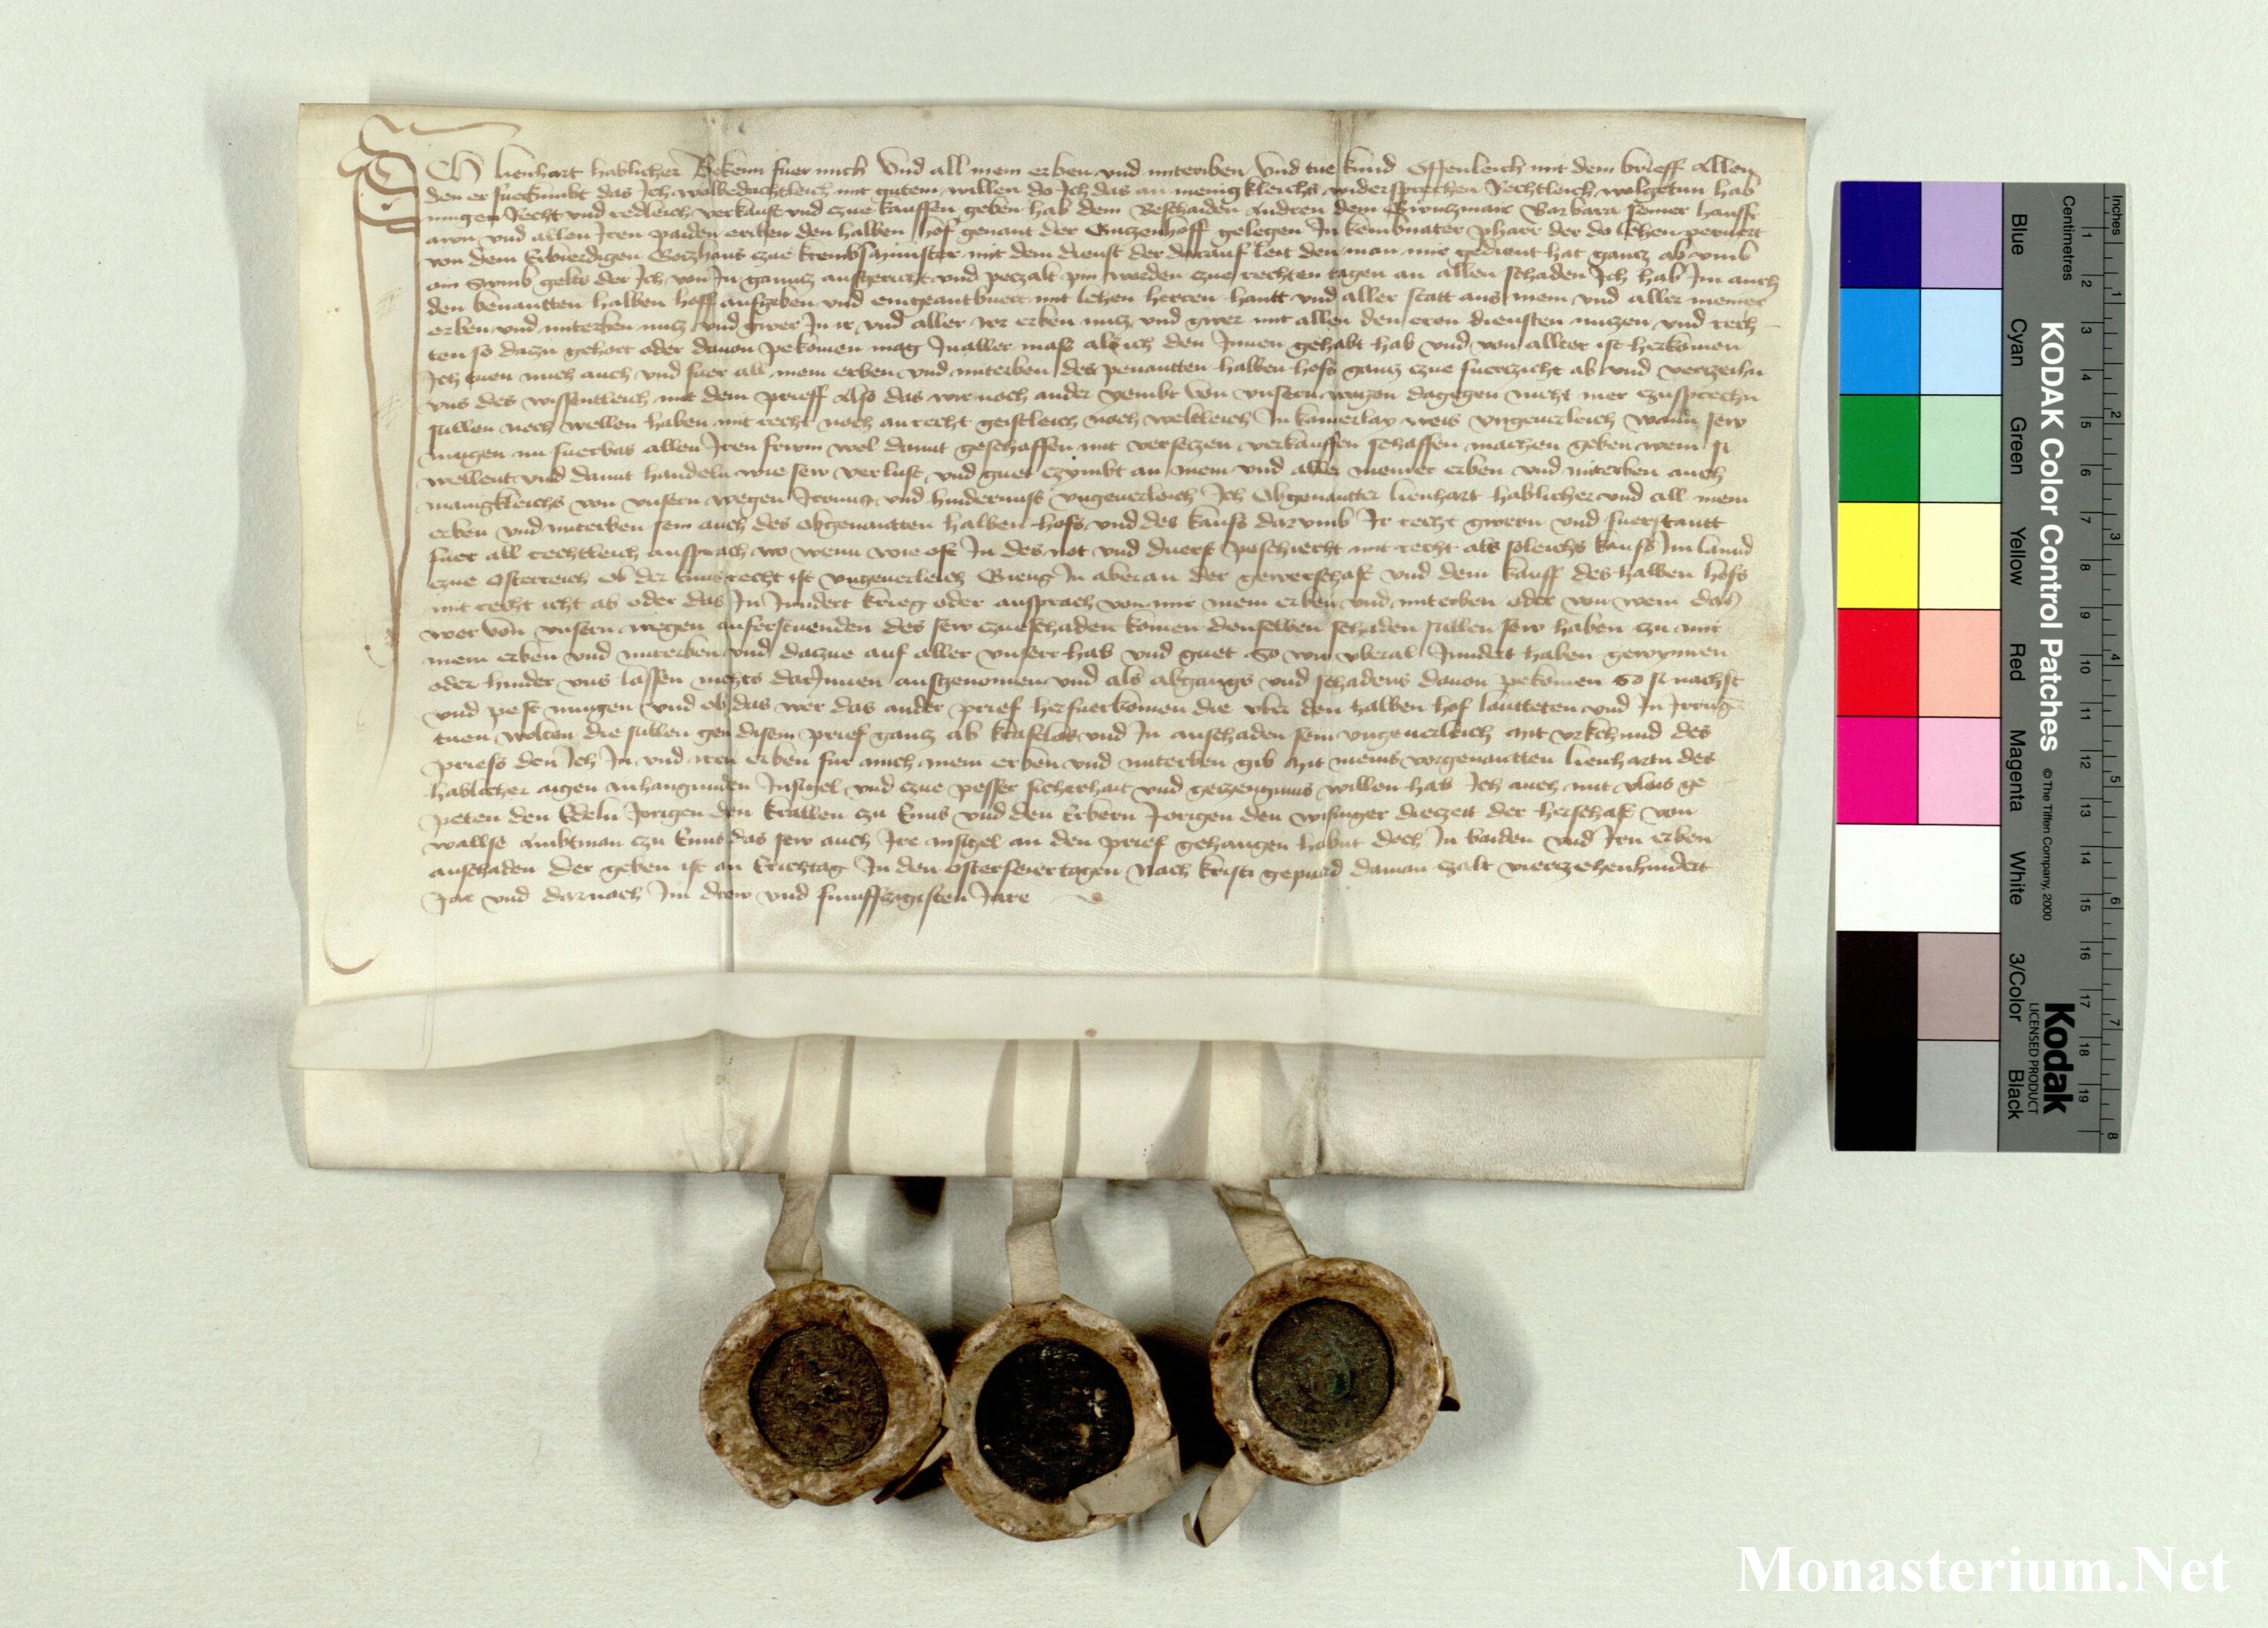 Ich Lienhart hablicher Bekenn fuer mich Vnd all mein erben vnd miterben Vnd tue kund Offenleich mit dem brieff Allen
den er fuerkumbt das Ich wolbedachtleich mit gutem willen do Ich das an menigkleichs widersprechen Rechtleich wolgetun hab
mugen Recht vnd redleich verkauft vnd czue kauffen geben hab dem Beschaiden Andren dem Barbara seiner hausfr
awn vnd allen Iren paiden eriben den halben hof genant der Guczenhoff gelegen In kembnater pharr der do lehen
von dem Erbierdigen Goczhaus czue krembsmunster mit dem dienst der darauf leit den man mir gedient hat gancz ab vmb
ain Sumb gelts der Ich von In ganncz ausgericht vnd peczalt pin worden czue rechten tagen an allen schaden Ich hab Im auch
den benantten halben hoff aufgeben vnd eingeantbuert mit lehen herren hantt vnd aller statt aus mein vnd aller meiner
erben vnd miterben nucz vnd gwer In ir vnd aller irer erben nucz vnd gwer mit allen den eren diensten nuczen vnd rech
ten so daczu gehort oder dauon pekomen mag Inaller mass als ich den Innen gehabt hab vnd von allter ist herkomen
Ich tuen mich auch vnd fuer all mein erben vnd miterben des penantten halben hofs gancz czue fuerczicht ab vnd verczeihn
vns des wissentleich mit dem prieff Also das wir noch ander yembt von vnsern wegen dagegen nicht mer czusprechn
sullen noch wellen haben mit recht noch an recht geistleich noch weltleich In weis vngeuerleich wann sew
mugen nu fuerbas allen Iren frum wol damit geschaffen mit verseczen verkauffen schaffen machen geben wem si
wellent vnd damit handeln wie sew verlust vnd guet czymbt an mein vnd aller meiner erben vnd miterben auch
manigkleichs von vnsern wegen Irrung vnd hindernuss vngeuerleich Ich Obgenantter lienhart hablicher vnd all mein
erben vnd miterben sein auch des obgenantten halben hofs vnd des kaufs darvmb Ir recht gwern vnd fuerstantt
fuer all rechtleich ansprach wo wenn wie oft In des not vnd duerft peschiecht mit recht als soleichs kaufs Im lannd
czue Osterreich ob der Enns recht ist vngeuerleich Gieng In aberan der gewerschaft vnd dem kauff des halben hofs
mit recht icht ab oder das In Inndert krieg oder ansprach von mir mein erben vnd miterben oder von wem das
wer von vnsern wegen auferstuenden des sew czueschaden komen denselben schaden sullen sew haben czu mir
mein erben vnd miterben vnd daczue auf aller vnserr hab vnd guet So wir vberal Inndert haben gewynnen
oder hinder vns lassen nichts darInnen ausgenomen vnd als abgangs vnd schadens dauon pekomen So si nachst
vnd pest mugen vnd ob das wer das ander prief herfuerkomen die vber den halben hof lautteten vnd In Irrug
tuen wolten die sullen gen disem prief gancz ab kraftlos vnd In anschaden sein vngeuerleich mit vrkchund des
priefs den Ich In vnd iren erben fur mich mein erben vnd miterben gib mit meins vorgenantten lienhartn des
hablicher aigen anhangunden Insigel vnd czue pesser sicherhait vnd geczeugnuss willen hab Ich auch mit vleis ge
peten den Edeln Jorigen den krallen czu Enns vnd den Erbern Jorigen den wisinger dieczeit der herschaft von
wallse ambtman czu Enns das sew auch Ire insigel an den prief gehangen habnt doch In baiden vnd Irn erben
anschaden Der geben ist an Erichtag In den osterfeiertagen Nach kristi gepurd daman czalt vierczehenhundert
Jar vnd darnach Im drew vnd funffczigisten Jare
Inches
Centimetres
KODAK Color Control Patches
© The Tiffen Company, 2000
Kodak
LICENSED PRODUCT
Blue Cyan Green Yellow Red Magenta White 3/Color Black
1 2 3 4 5 6 7 8 9 10 11 12 13 14 15 16 17 18 19
1 2 3 4 5 6 7 8
Monasterium.Net